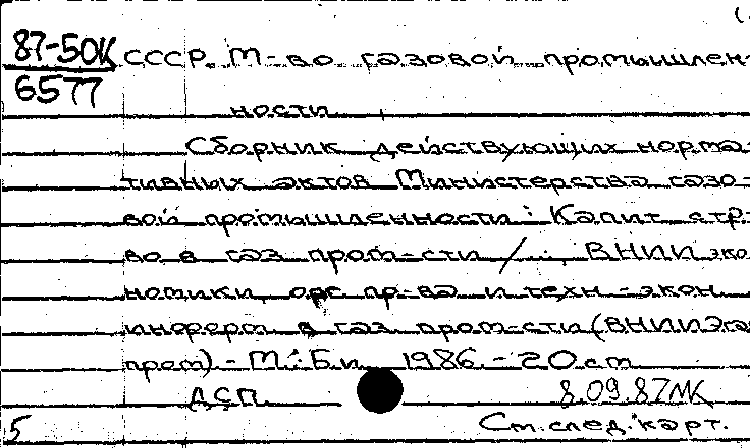 87-50К
6577
СССР. М-во газовой промышлен-
ности
Сборник действующих норма-
тивных актов Министерства газо-
вой промышленности: Капит. стр-
во в газ. пром-сти / ... ВНИИ эко-
номики, орг. пр-ва и техн.-экон.
информ. в газ. пром-сти (ВНИИЭгаз-
пром). - М.: Б.и. 1986. - 20 см
ДСП.
8.09.87
См. след. карт.
5